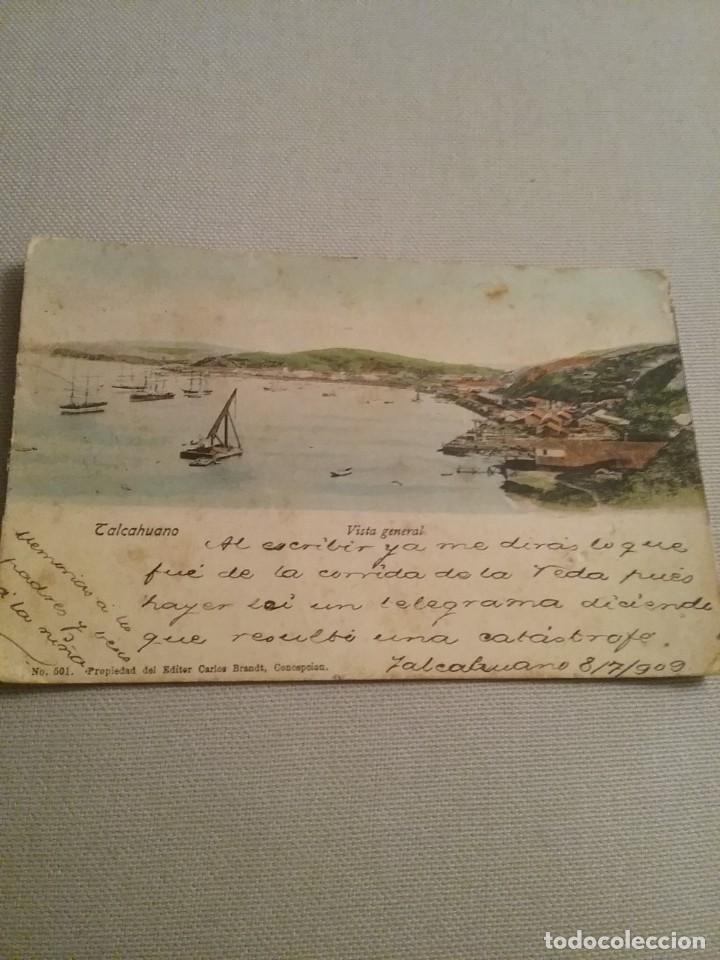 Talcahuano
Vista general
Al escribir ya me dirás lo que
fué de la corrida de la Veda pués
hayer leí un telegrama diciendo
que resultó una catástrofe.
Talcahuano 8/7/909
Memorias a lo
padres y
a la niña
No. 501. Propiedad del Editor Carlos Brandt, Concepcion.
todocoleccion